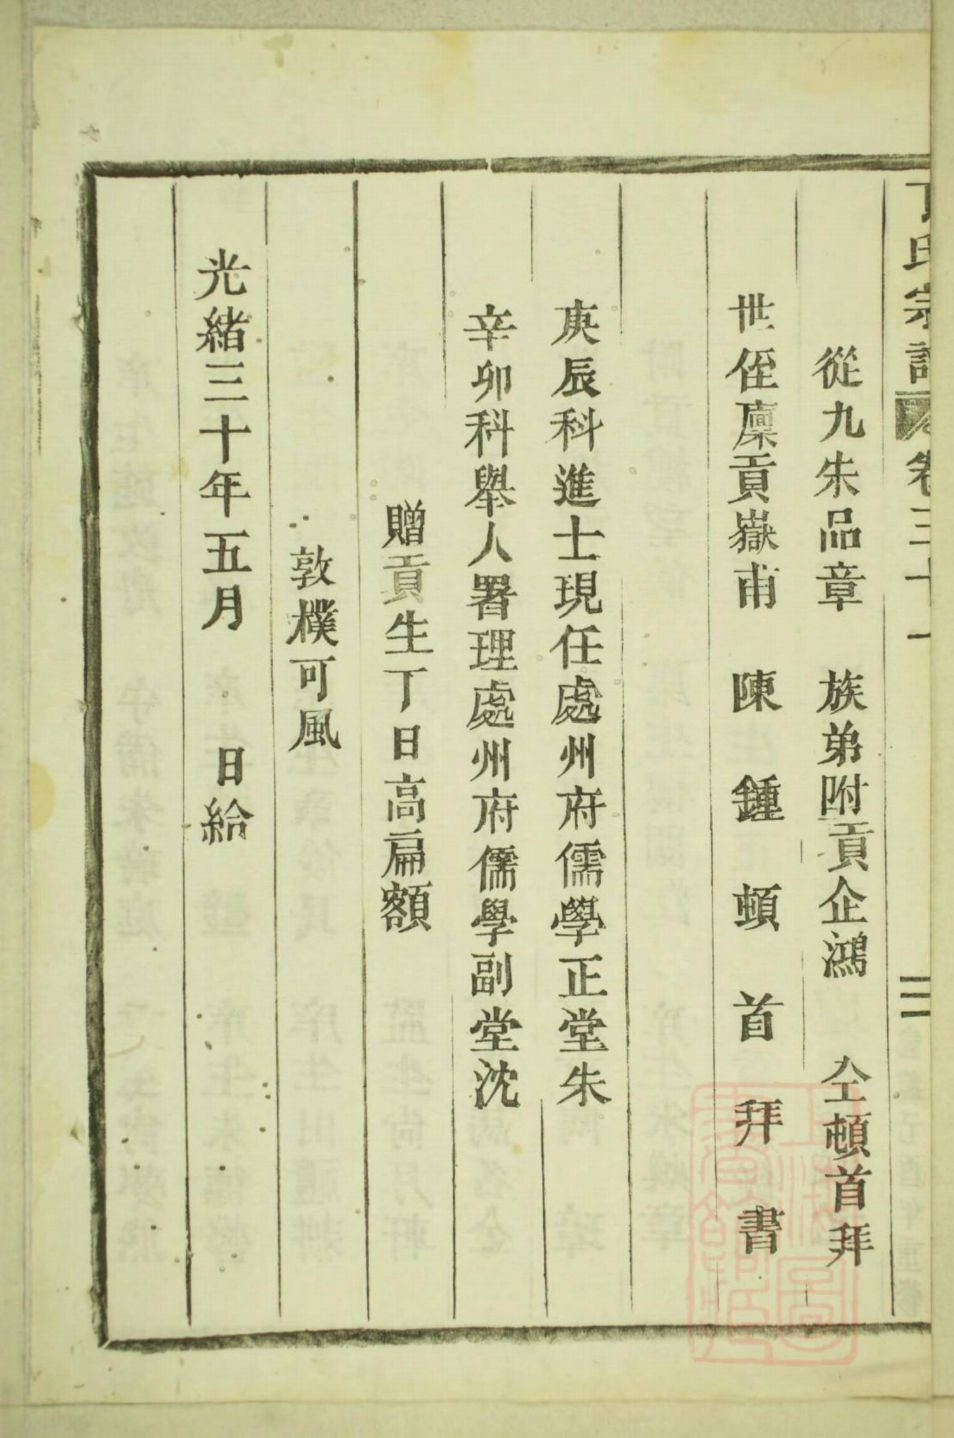 丁氏宗譜 卷三十一
從九朱品章 族弟附貢企鴻 仝頓首拜
世侄廩貢嶽甫 陳鍾頓首拜書
庚辰科進士現任處州府儒學正堂朱
辛卯科舉人署理處州府儒學副堂沈
贈貢生丁日高扁額
敦樸可風
光緒三十年五月 日給